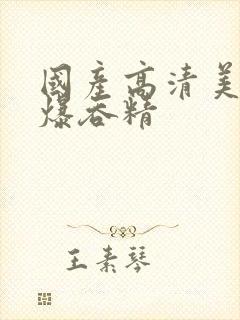 國產高清美
爆吞精
王素琴